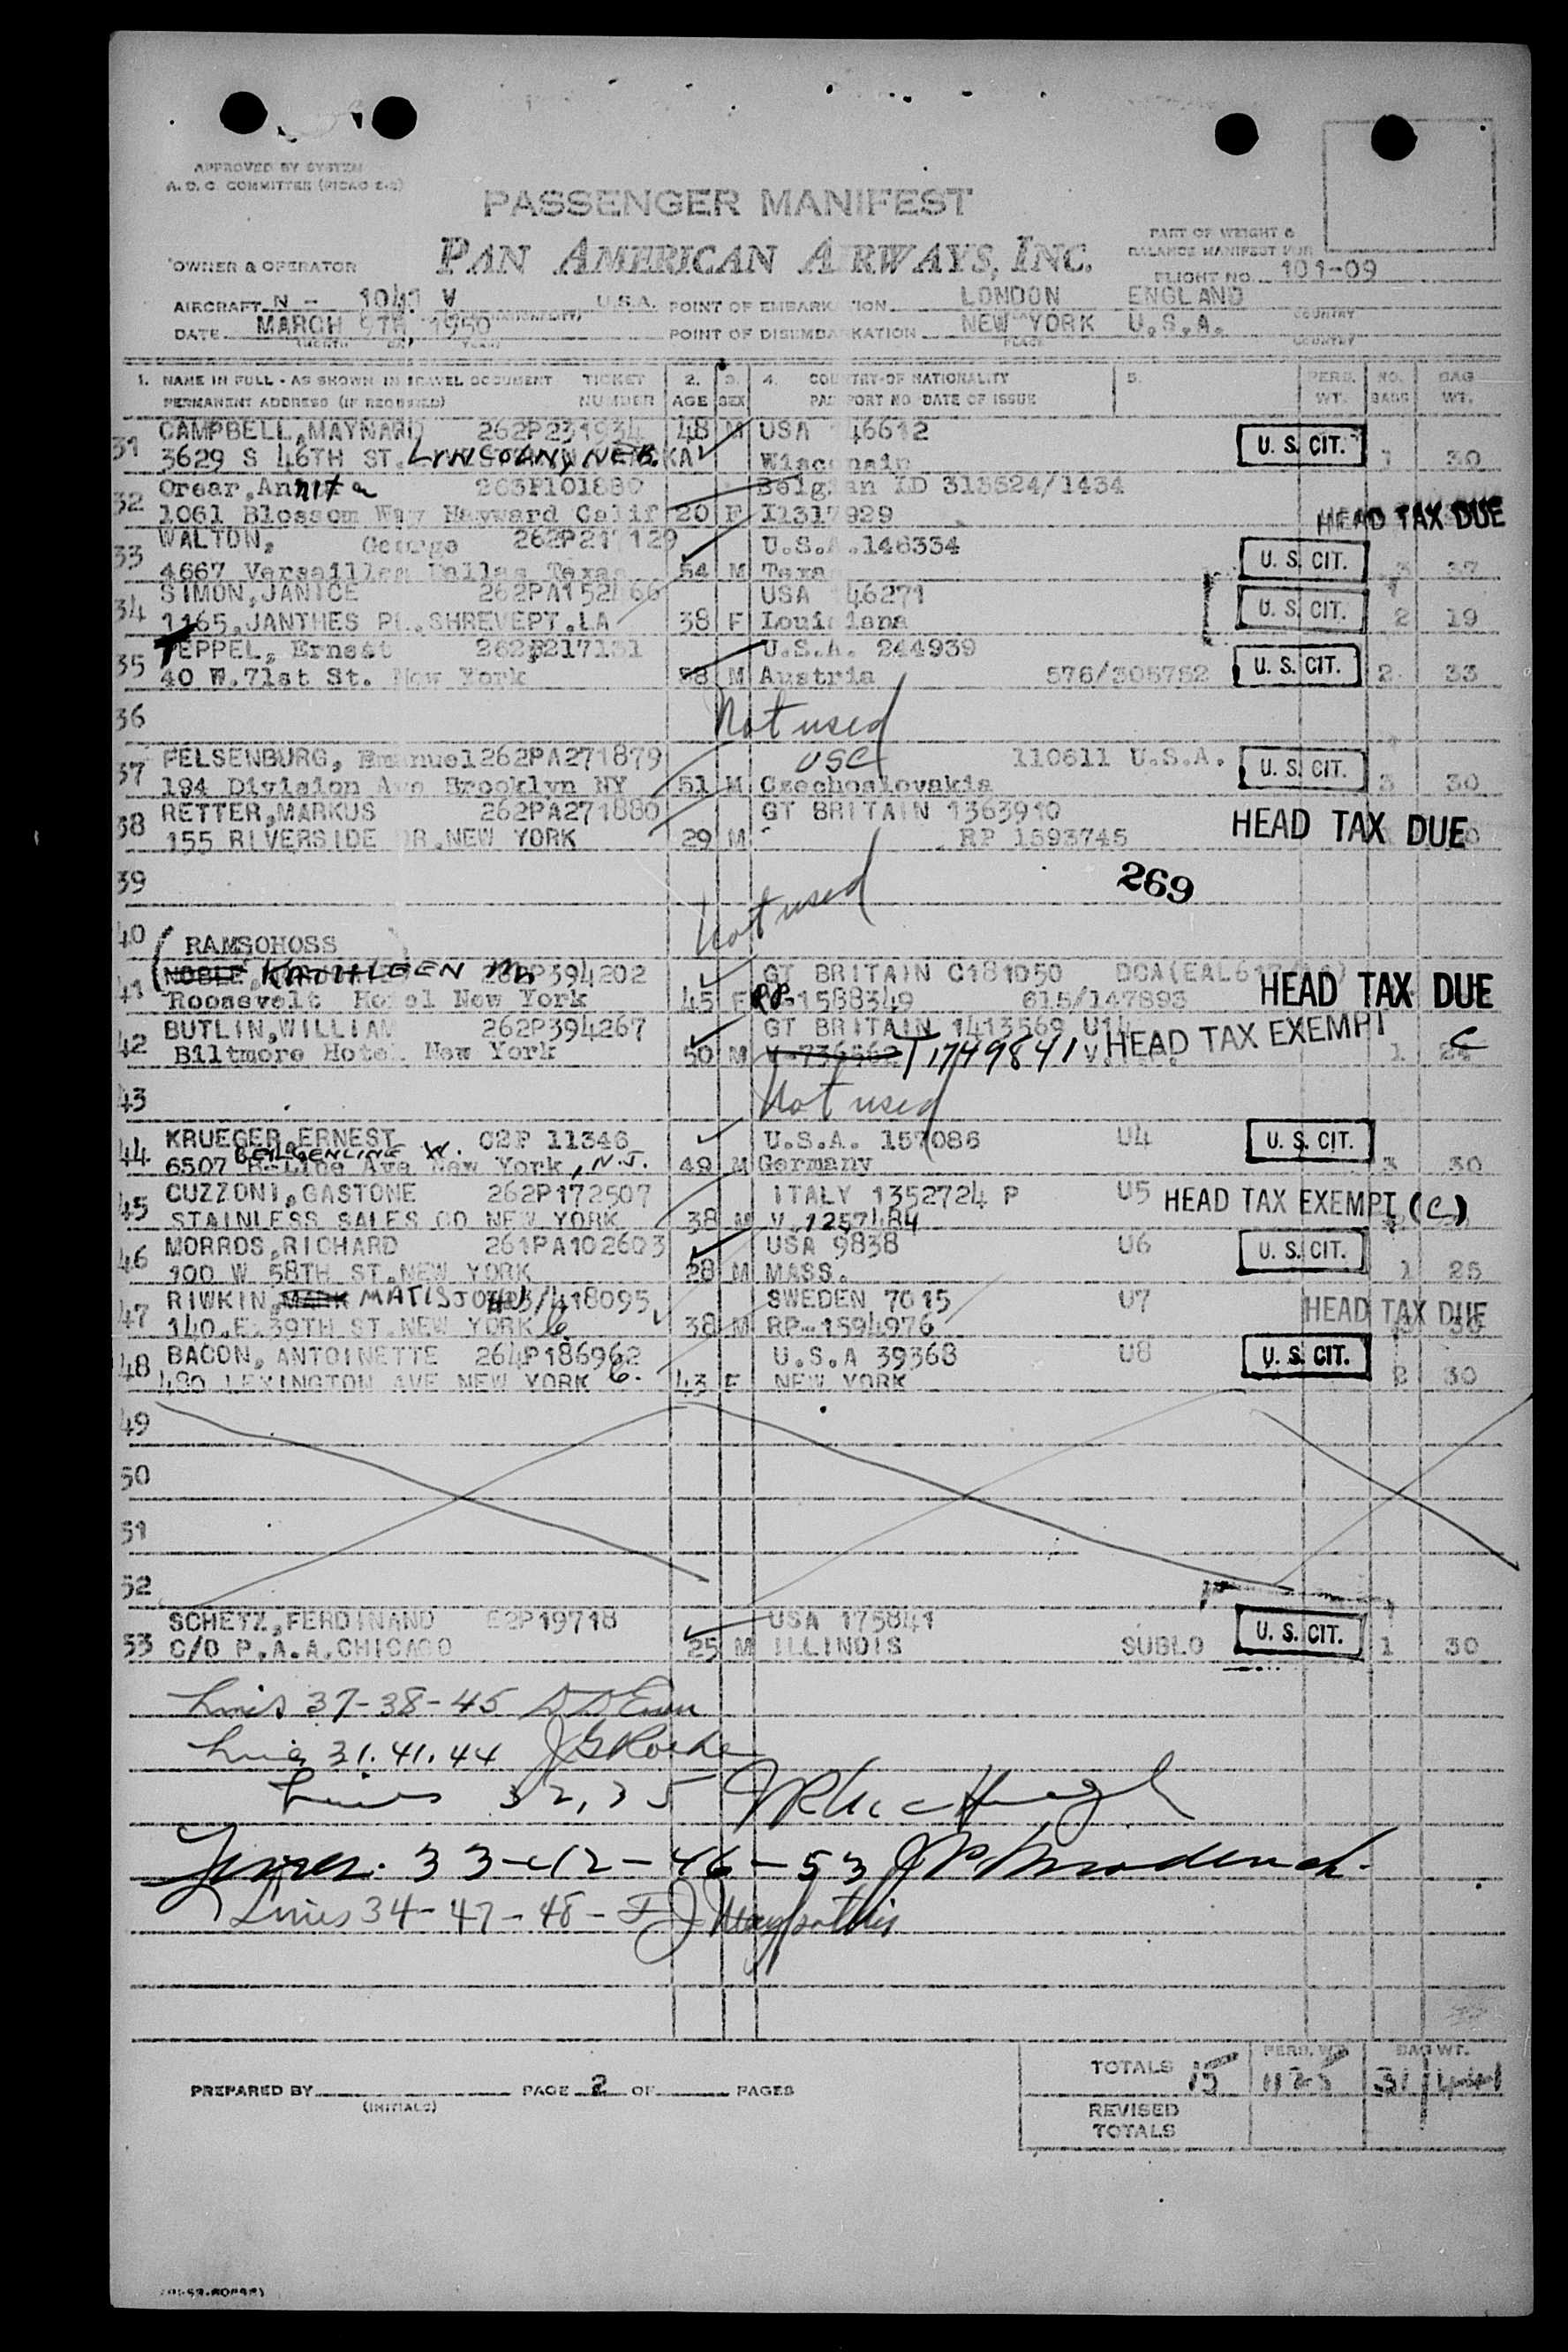 APPROVED BY SYSTEM
A.D.C. COMMITTEE
PASSENGER MANIFEST
PAN AMERICAN A RWAYS, INC.
PART OF WEIGHT &
BALANCE MANIFEST FOR
FLIGHT NO. 101-09
OWNER & OPERATOR
AIRCRAFT N - 1041 V U.S.A. POINT OF EMBARK TION LONDON ENGLAND
COUNTRY
DATE MARCH 9TH, 1950 POINT OF DISEMBA KATION NEW YORK U.S.A.
PLACE COUNTRY
1. NAME IN FULL - AS SHOWN IN TRAVEL DOCUMENT TICKET 2. 3. 4. COUNTRY OF NATIONALITY 5. PERS. NO. BAG
PERMANENT ADDRESS (IF REQUIRED) NUMBER AGE SEX PAS PORT NO DATE OF ISSUE WT. BAGS WT.
31 CAMPBELL, MAYNARD 262P231934 48 M USA 46612 U. S. CIT.
3629 S 46TH ST. LINCOLN, NEB. KA 1 30
32 Orear, Annita 263P101880 Belg an ID 313524/1434
1061 Blossom Way Hayward Calif 20 F I1317929 HEAD TAX DUE
33 WALTON, George 262P217129 U.S.A. 146334 U. S. CIT.
4667 Versailles Dallas Texas 54 M Texa 3 37
34 SIMON, JANICE 262PA152466 USA 46271 U. S. CIT.
1165, JANTHES PL. SHREVEPT. LA 38 F Loui iana 2 19
35 TEPPEL, Ernest 262P217131 U.S.A. 244939 U. S. CIT.
40 W. 71st St. New York 58 M Austria 576/305752 2 33
36 Not used
37 FELSENBURG, Emanuel 262PA271879 USC 110611 U.S.A. U. S. CIT.
194 Division Ave Brooklyn NY 51 M Czechoslovakia 3 30
38 RETTER, MARKUS 262PA271880 GT BRITAIN 1363910 HEAD TAX DUE
155 RIVERSIDE DR. NEW YORK 29 M RP 1593745
39 269
Not used
40
RAMSOHOSS
41 NOBLE, KATHLEEN M 394202 GT BRITAIN C181050 HEAD TAX DUE
Roosevelt Ho el New York 45 F RP-1588349 615/147893
42 BUTLIN, WILLIAM 262P394267 GT BRITAIN 1413569 U14 HEAD TAX EXEMPT C
Biltmore Hotel New York 50 M T1749841 1
43 Not used
44 KRUEGER, ERNEST W. 02P 11346 U.S.A. 157086 U4 U. S. CIT.
6507 BERGENLINE B-Line Ave New York, N.J. 49 M Germany 3 30
45 CUZZONI, GASTONE 262P172507 ITALY 1352724 P U5 HEAD TAX EXEMPT (C)
STAINLESS SALES CO NEW YORK 38 M V 1257484
46 MORROS, RICHARD 261PA102603 USA 9838 U6 U. S. CIT.
100 W 58TH ST. NEW YORK 28 M MASS. 1 25
47 RIWKIN, MARK MATISJOHU /418095 SWEDEN 7015 U7 HEAD TAX DUE
140. E. 39TH ST. NEW YORK 16 38 M RP-1594976
48 BACON, ANTOINETTE 264P186962 U.S.A 39368 U8 U. S. CIT.
480 LEXINGTON AVE NEW YORK 6. 43 F NEW YORK 2 30
49
50
51
52
SCHETZ, FERDINAND E2P19718 USA 175841 U. S. CIT.
53 C/O P.A.A. CHICAGO 25 M ILLINOIS SUBLO 1 30
Lines 37-38-45
Lines 31.41.44 J G Roche
Lines 32, 35
Lines: 33-42-46-53
Lines 34-47-48-
TOTALS 15 1125 31 441
PERS. WT. BAG WT.
PREPARED BY (INITIALS) PAGE 2 OF PAGES
REVISED
TOTALS